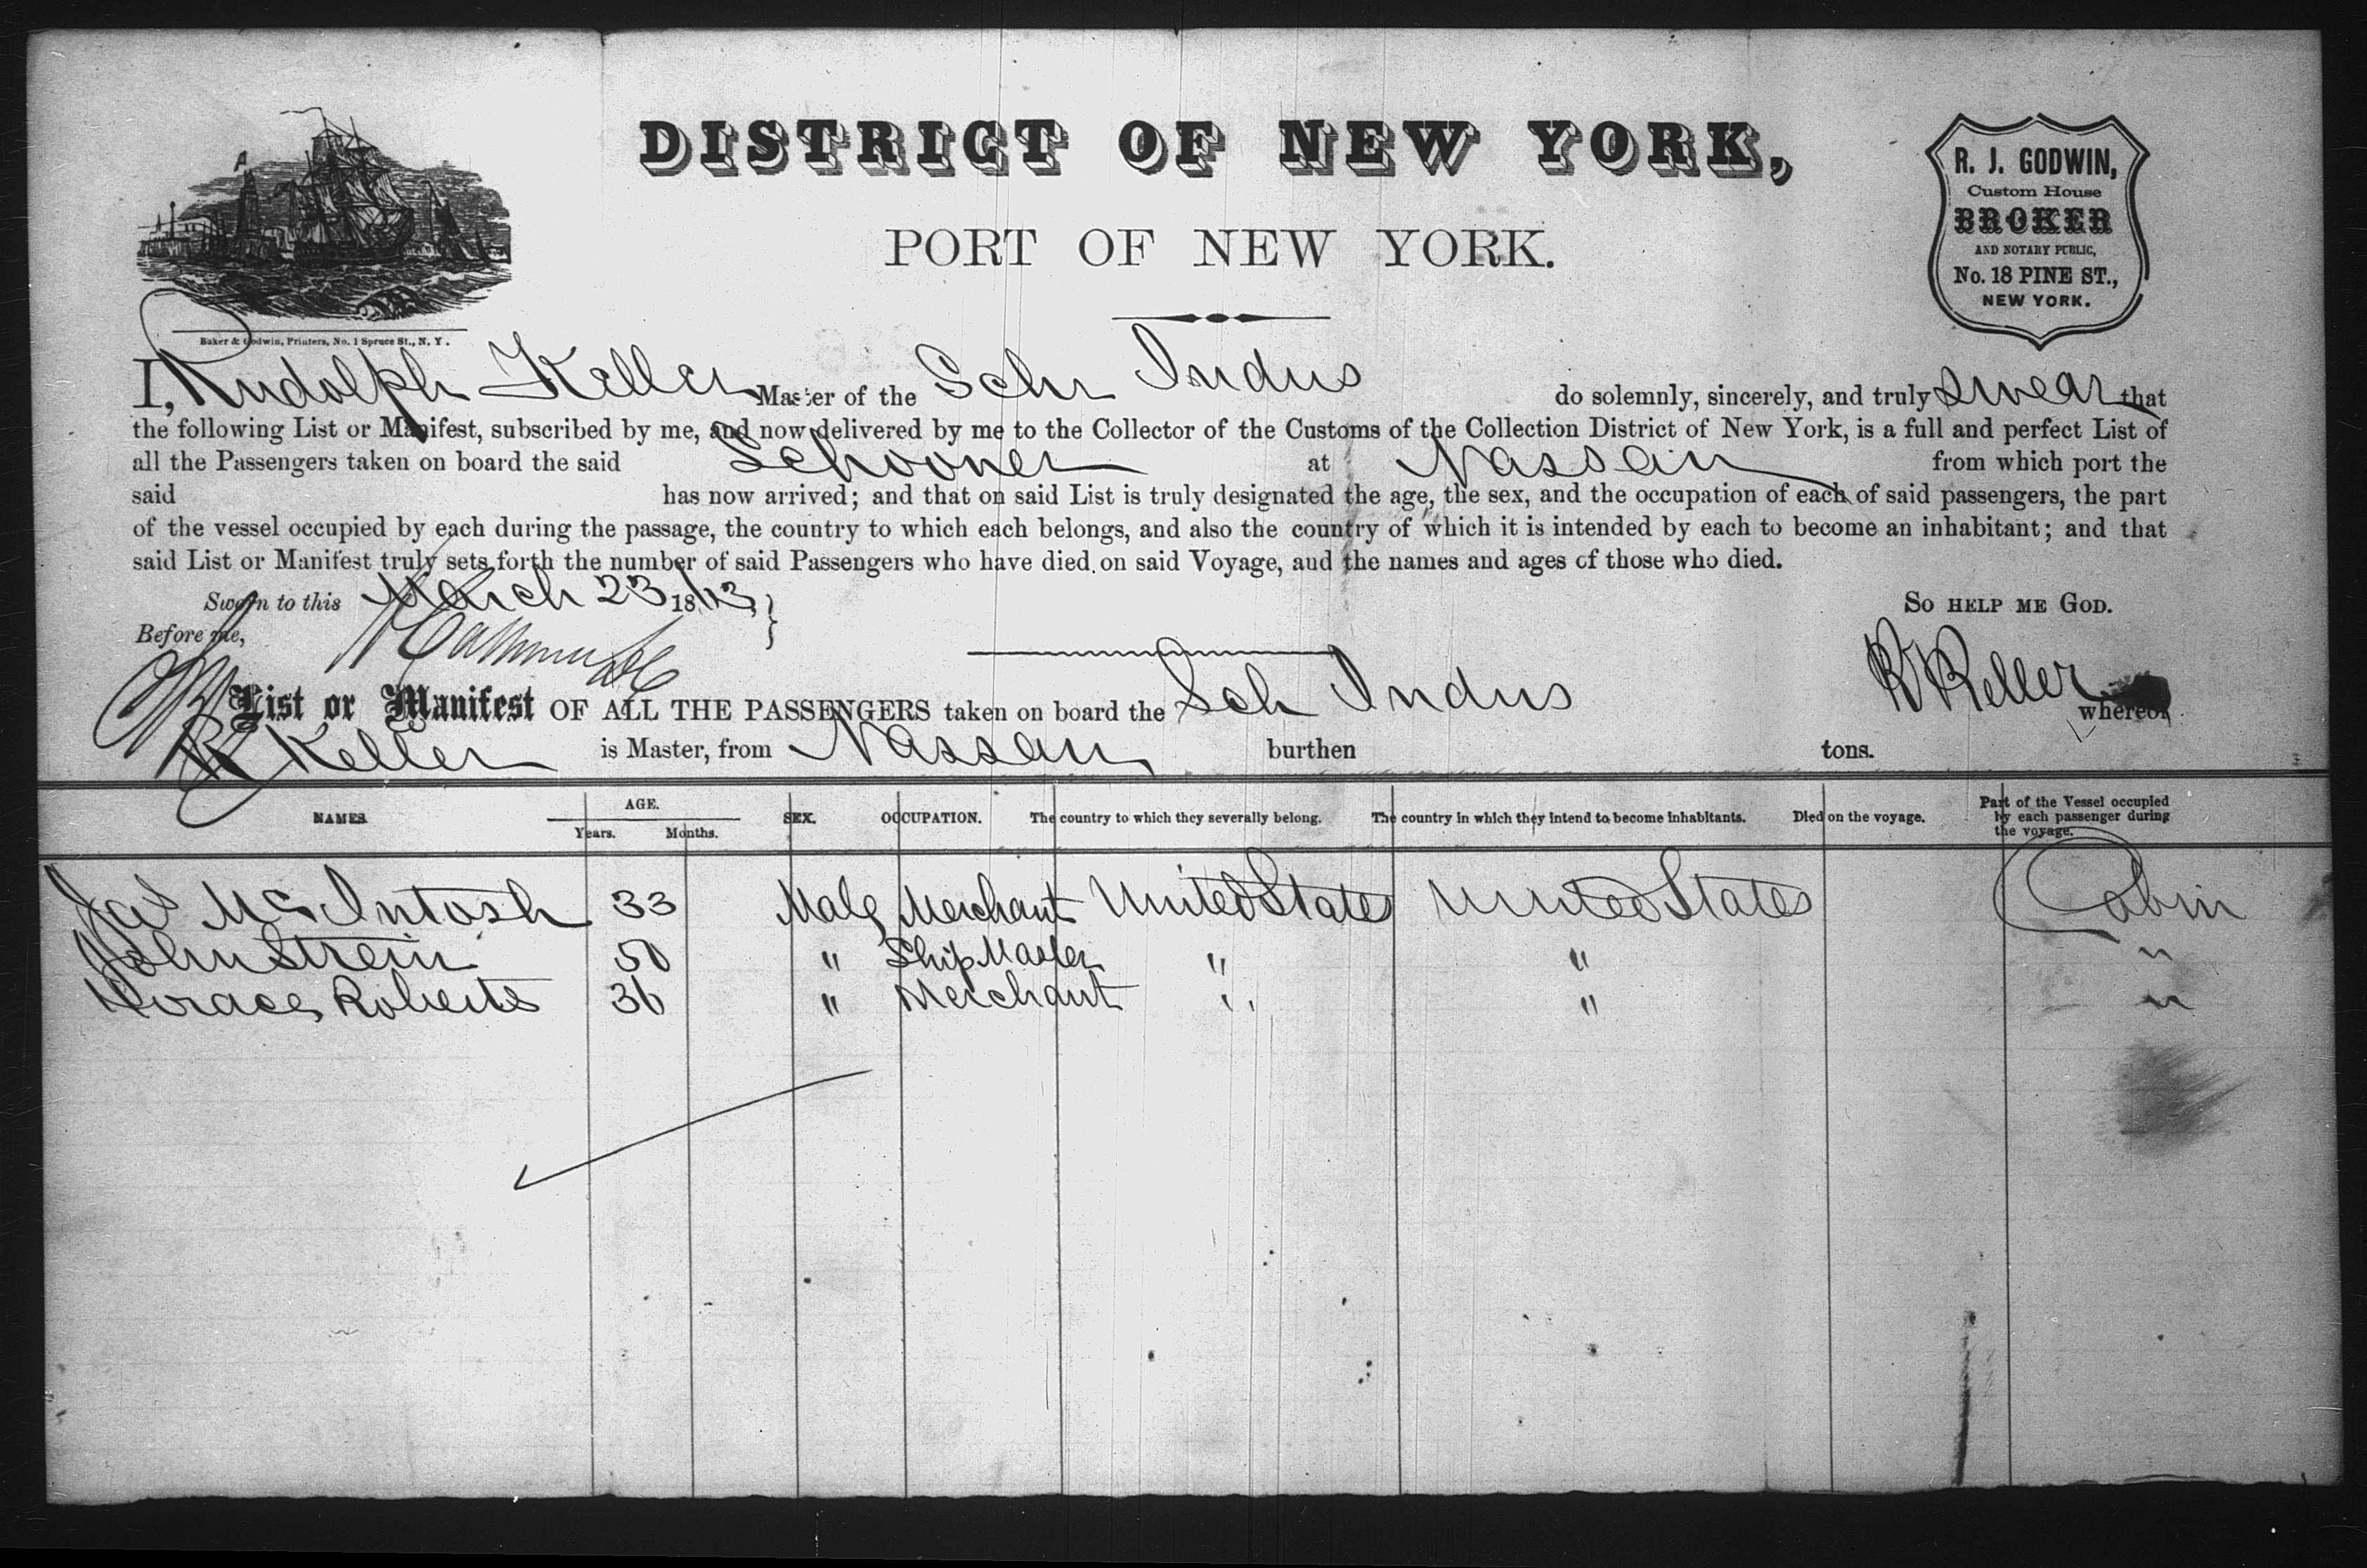 DISTRICT OF NEW YORK,
PORT OF NEW YORK.
R. J. GODWIN,
Custom House
BROKER
AND NOTARY PUBLIC,
No. 18 PINE ST.,
NEW YORK.
Baker & Godwin, Printers, No. 1 Spruce St., N. Y.
I, Rudolph Keller Master of the Schr Indus do solemnly, sincerely, and truly swear that
the following List or Manifest, subscribed by me, and now delivered by me to the Collector of the Customs of the Collection District of New York, is a full and perfect List of
all the Passengers taken on board the said Schooner at Nassau from which port the
said has now arrived; and that on said List is truly designated the age, the sex, and the occupation of each of said passengers, the part
of the vessel occupied by each during the passage, the country to which each belongs, and also the country of which it is intended by each to become an inhabitant; and that
said List or Manifest truly sets forth the number of said Passengers who have died on said Voyage, and the names and ages of those who died.
Sworn to this March 23 1863 So help me God.
Before me,
R Keller
List or Manifest OF ALL THE PASSENGERS taken on board the Sch Indus whereof
R Keller is Master, from Nassau burthen tons.
NAMES AGE. Years. Months. SEX. OCCUPATION. The country to which they severally belong. The country in which they intend to become inhabitants. Died on the voyage. Part of the Vessel occupied by each passenger during the voyage.
Jas McIntosh 33 Male Merchant United States United States Cabin
John Strein 50 " Ship Master " " "
Horace Roberts 36 " Merchant " " "